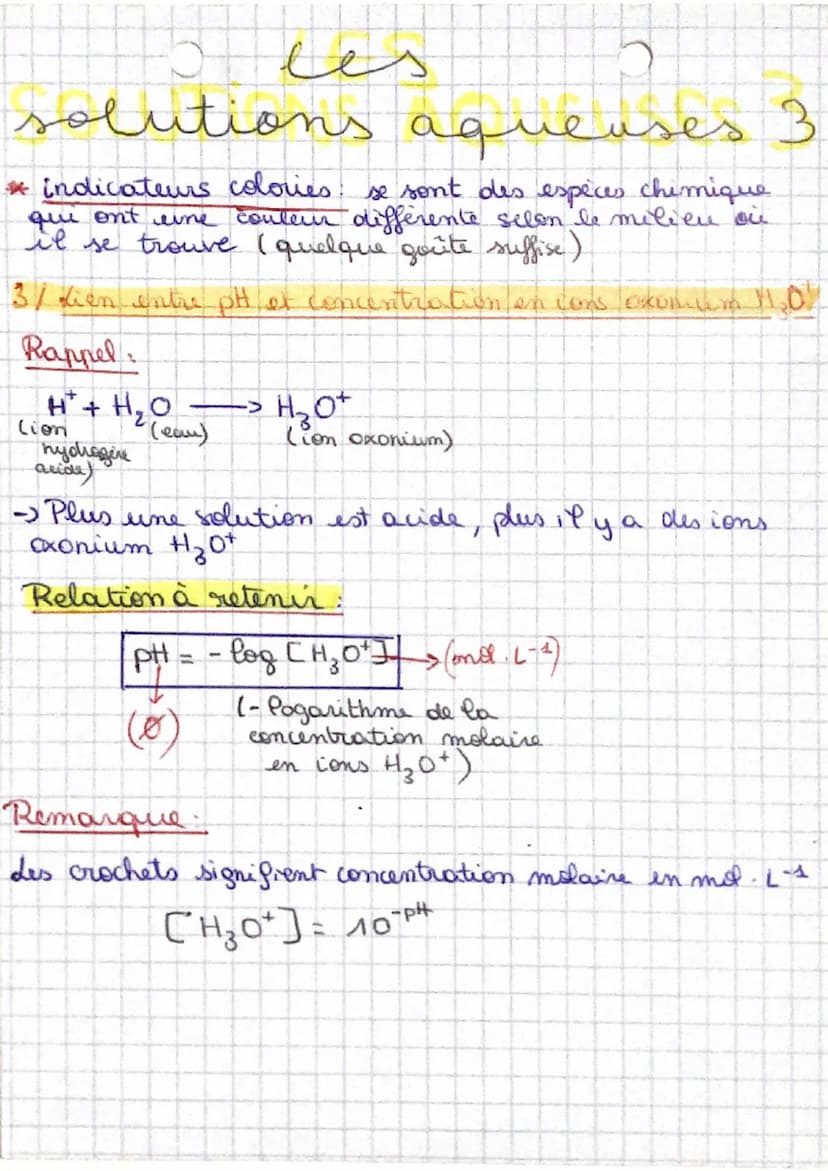 Les
solutions aqueuses 3
* indicateurs colories : se sont des espèces chimique
qui ont une couleur différente selon le milieu où
il se trouve (quelque goûte suffise)
3/ Lien entre pH et concentration en ions oxonium H₃O⁺
Rappel :
H⁺ + H₂O → H₃O⁺
(ion hydrogène acide) (eau) (ion oxonium)
-> Plus une solution est acide, plus il y a des ions
oxonium H₃O⁺
Relation à retenir :
pH = - log [H₃O⁺] → (mol . L⁻¹)
(Ø)
(- logarithme de la
concentration molaire
en ions H₃O⁺)
Remarque :
Les crochets signifient concentration molaire en mol . L⁻¹
[H₃O⁺] = 10⁻ᵖᴴ